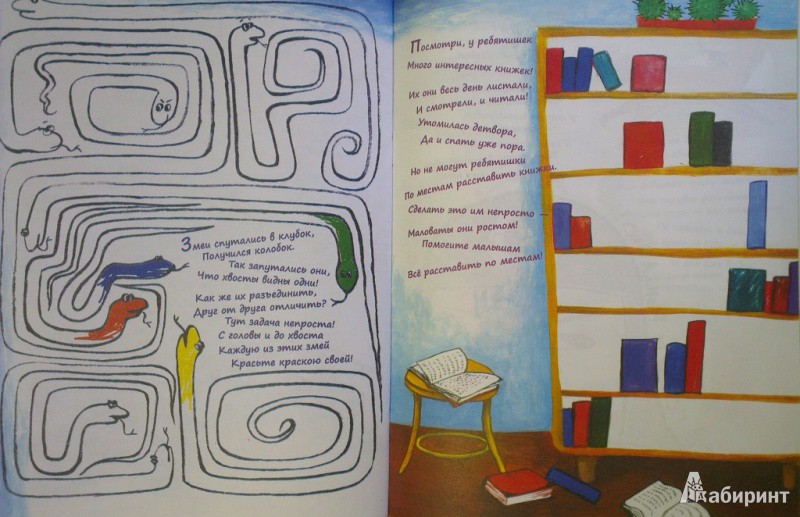 Змеи спутались в клубок,
Получился коловок.
Так запутались они,
Что хвосты видны одни!
Как же их разъединить,
Друг от друга отличить?
Тут задача непроста!
С головы и до хвоста
Каждую из этих змей
Красьте краскою своей!
Посмотри, у ребятишек
Много интересных книжек!
Их они весь день листали,
И смотрели, и читали!
Утомилась детвора,
Да и спать уже пора.
Но не могут ребятишки
По местам расставить книжки.
Сделать это им непросто —
Маловаты они ростом!
Помогите малышам
Всё расставить по местам!
Лабиринт